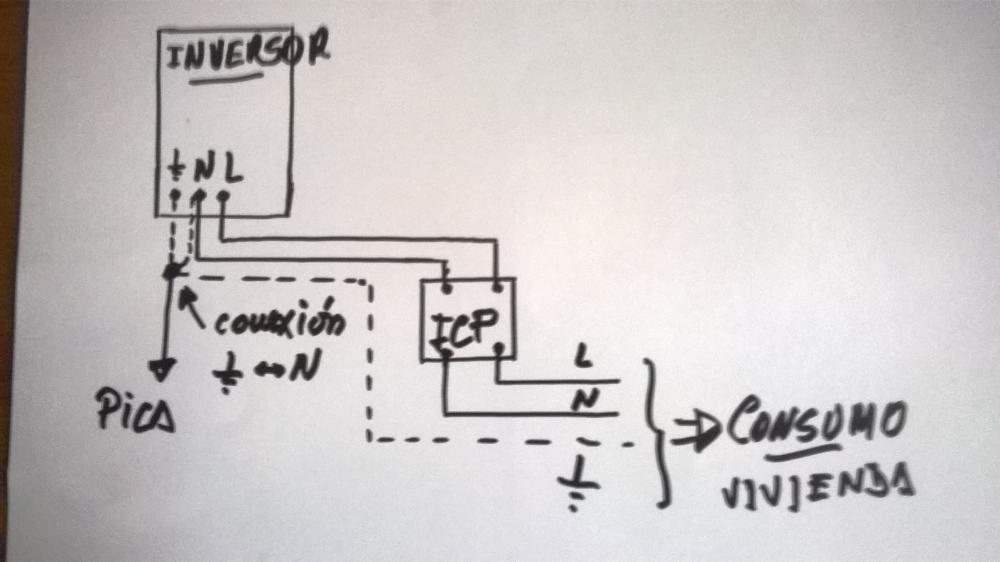 INVERSOR
⏚ N L
conexión
⏚ ↔ N
ICP
PICA
L
N
⏚
⇒ CONSUMO
VIVIENDA